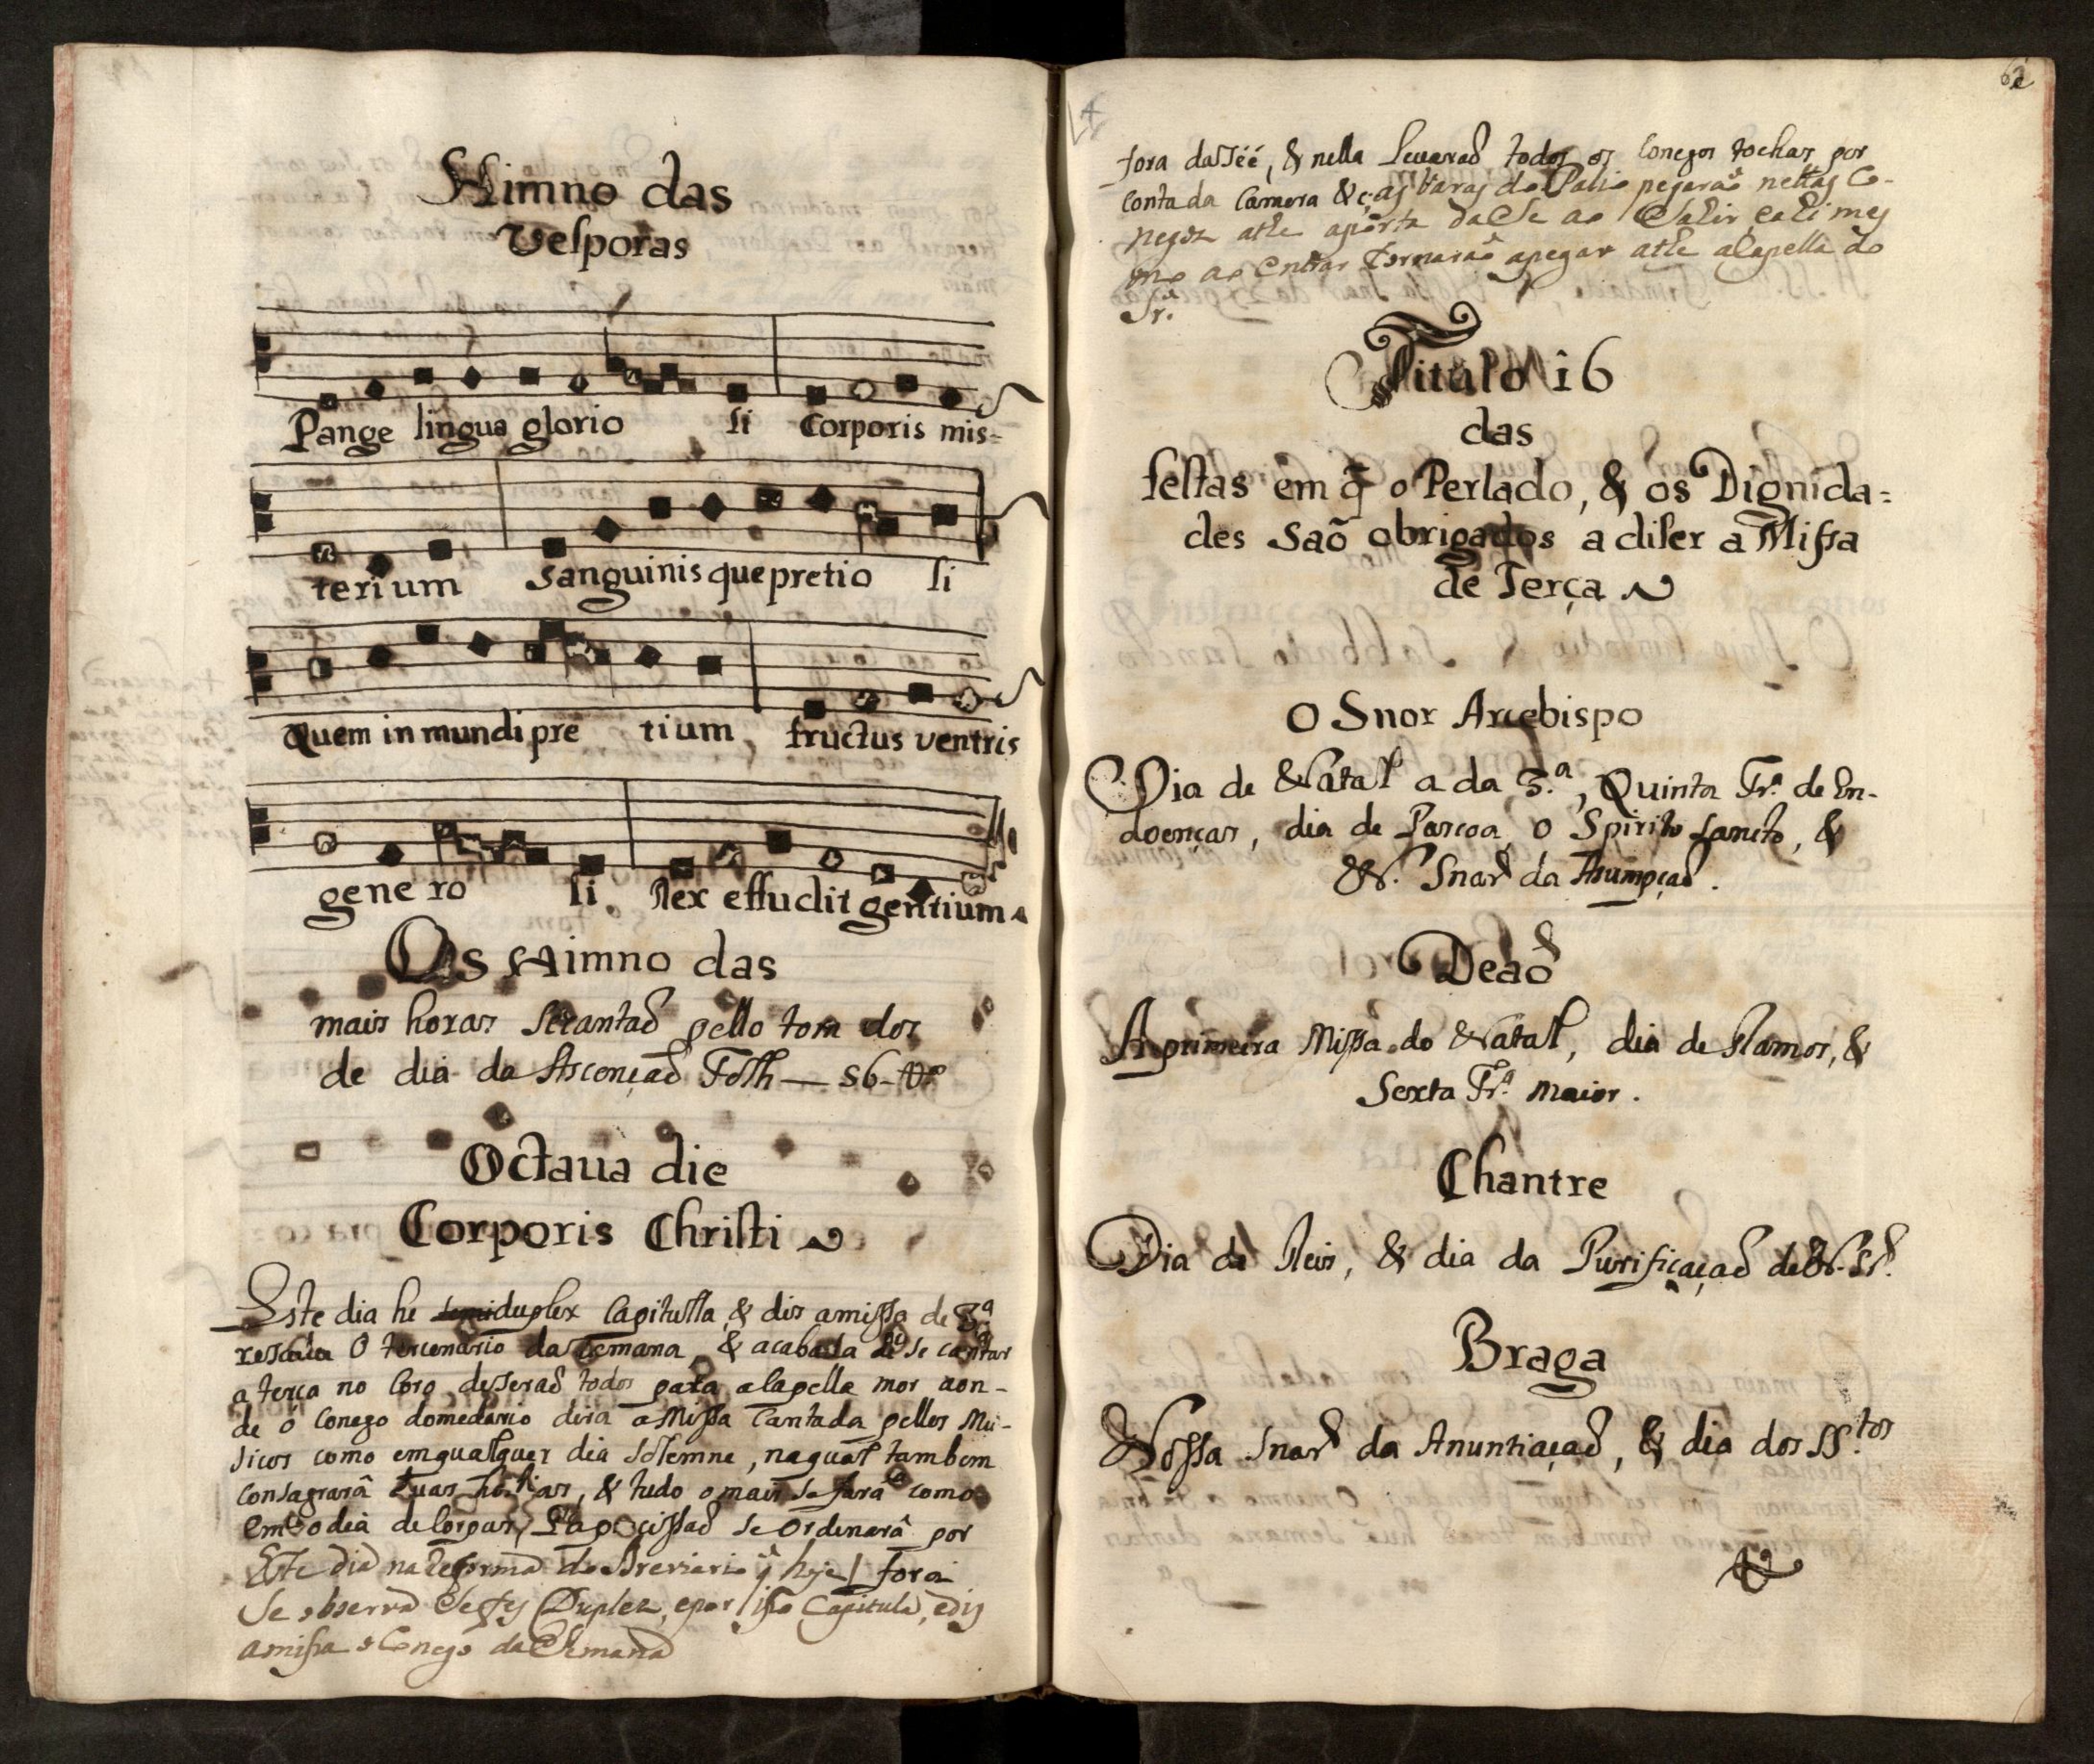 Himno das
Vesporas
Pange lingua glorio si corporis mis=
terium sanguinis que pretio si
Quem in mundi pre tium, fructus ventris
gene ro si. Rex effudit gentium.
Os Himno das
mais horas se cantaõ pello tom dos
de dia da Ascençaõ Folh — 56-Vº
Octaua die
Corporis Christi
Este dia he semiduplex Capitulla, & dis amissa de 3.ª
resada o tercenario da Semana, & acabada de se cantar
a terça no Coro desseraõ todos para a Capella mor aon-
de o Conego domedario dira a Missa Cantada pellos Mu-
sicos como em qualquer dia solemne, na qual tambem
consagrarâ duas hostias, & tudo o mais se fara como
em o dia de Corpus, se ordenarâ por
Este dia na Reforma do Breviario q̃ hoje fora
se observa he Duplex, e por isso Capitula, e dis
amissa o Conego da Semana
62
fora dasséé, & nella leuaraõ todos os Conegos tochas por
conta da Camera & as varas do Palio pegaraõ nellas Co-
negos athe aporta da Se ao Sahir, e ahi mes
mo ao entrar tornaraõ apegar athe a Capella do
Sr.
Titulo 16
das
festas em q̃ o Perlado, & os Dignida=
des saõ obrigados a diser a Missa
de Terça
O Snor Arcebispo
Dia de Natal a da 3.ª, Quinta Fr.ª de En-
doenças, dia de Pascoa, o Spirito sancto, &
N. Snrã da Asumpçaõ.
Deaõ
A primeira Missa do Natal, dia de Ramos, &
Sexta Fr.ª maior.
Chantre
Dia de Reis, & dia da Purificaçaõ de N. Sr.ª
Braga
Nossa Snrã da Anuntiaçaõ, & dia dos SS.tos